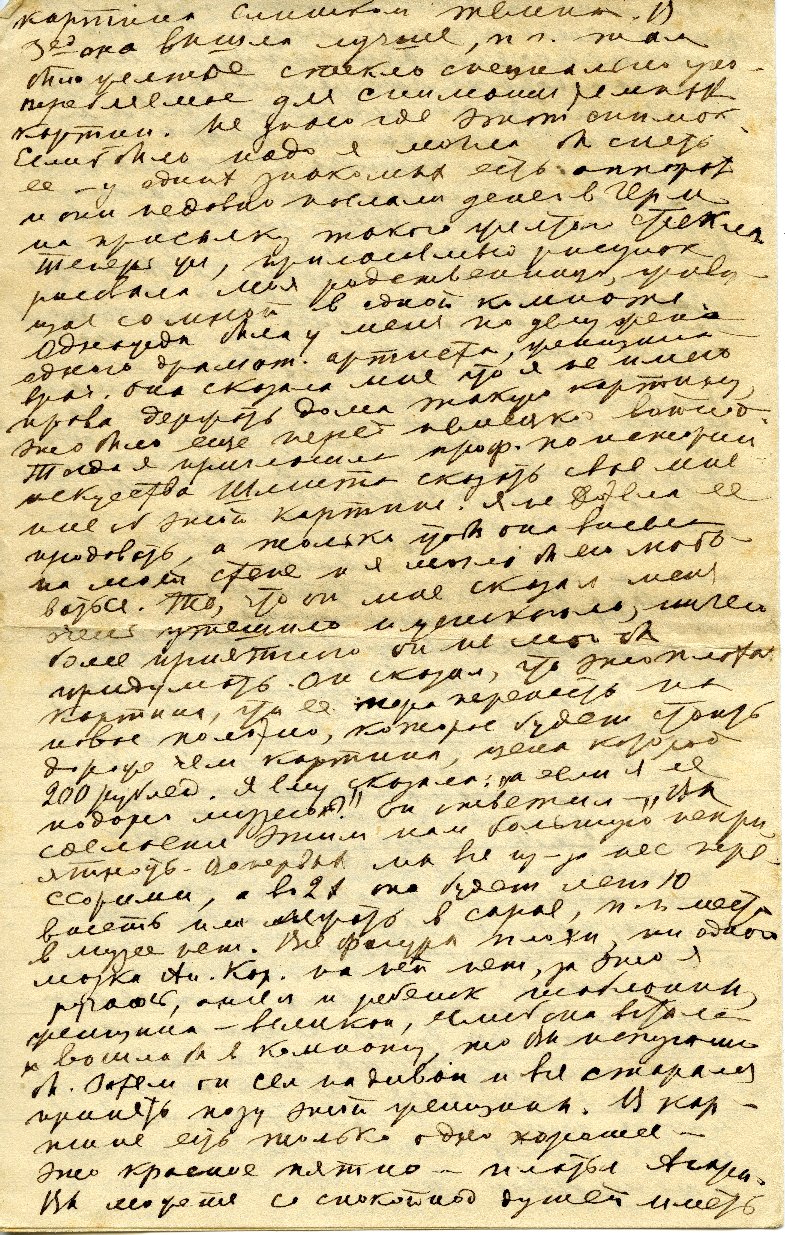 картина слишком темна. В
3ей она вышла лучше, п.ч. там
было желтое стекло специально упо-
требляемое для снимания темных
картин. Не знаю где этот снимок.
Если было надо я могла бы снять
ее – у одних знакомых есть аппарат
и они недавно послали денег в Герм.
на присылку такого желтого стекла
Теперь же, прилагаемый рисунок
рисовала моя родственница, живу-
щая со мной в одной комнате.
Однажды была у меня по делу жена
одного драмат. артиста, женщина
врач. Она сказала мне что я не имею
права держать дома такую картину,
это было еще перед немецкой войной.
Тогда я пригласила проф. по истории
искусства Шмита сказать свое мне-
ние об этой картине. Я не хотела ее
продавать, а только чтоб она висела
на моей стене и я могла бы ею любо-
ваться. То, что он мне сказал меня
очень утешило и успокоило, ничего
более приятного он не мог бы
придумать. Он сказал, что это плохая
картина, что ее пора перенесть на
новое полотно, которое будет стоить
дороже чем картина, цена которой
200 рублей. Я ему сказала: "а если я ее
подарю музею?" Он ответил – "Вы
сделаете этим нам большую непри-
ятность. Во первых мы все из-за нее пере-
ссоримся, а во 2х она будет лет 10
висеть или лежать в сарае, п.ч. места
в музее нет. Все фигуры плохи, ни одного
мазка Ан. Кар. на ней нет, за это я
ручаюсь, ангел и ребенок шаблонны,
женщина – великан, если б она встала
и вошла бы в комнату, то Вы испугались
бы. Затем он сел на диван и все старался
принять позу этой женщины. В кар-
тине есть только одно хорошее –
это красное пятно – платье Агари.
Вы можете со спокойной душой иметь